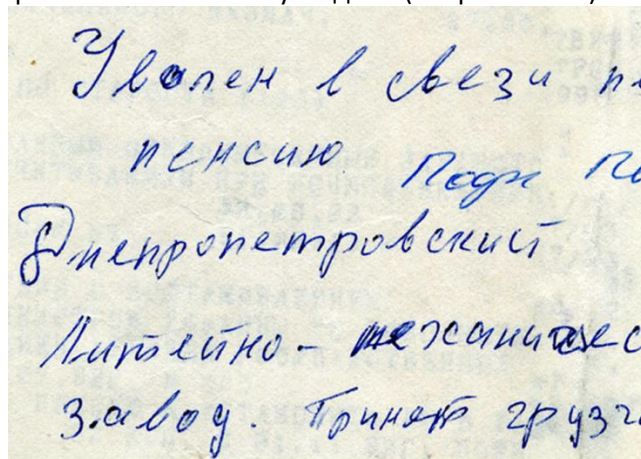 Уволен в свези пе
пенсию Подп
Днепропетровский
Литейно-механичес
завод. Принят грузч